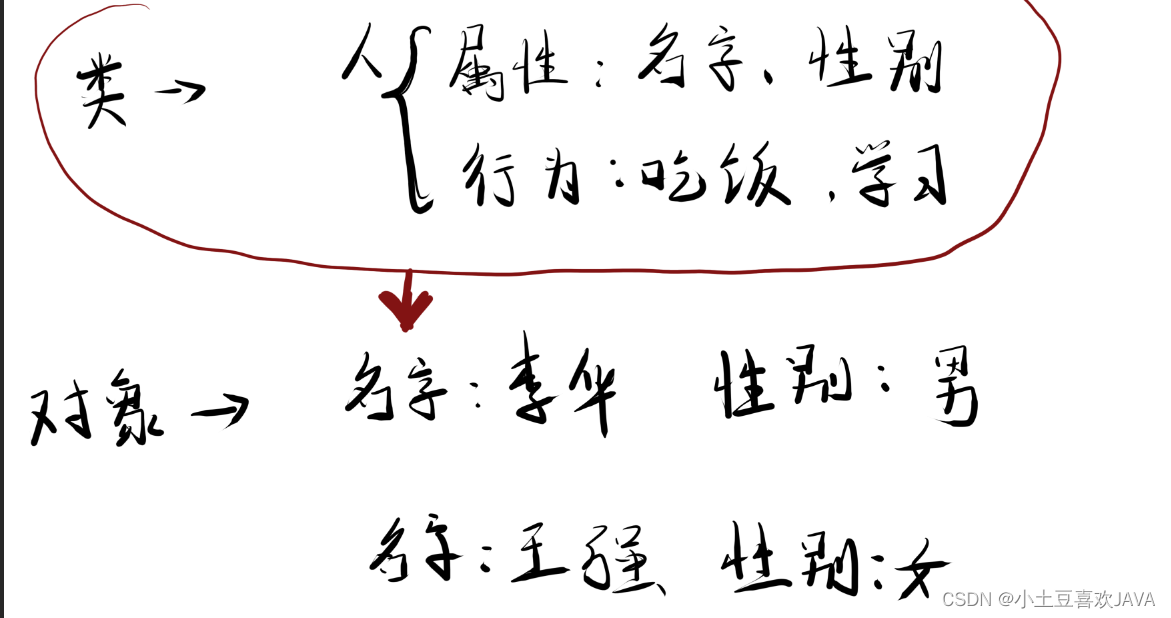 类→ 人{ 属性：名字、性别
行为：吃饭，学习
对象→ 名字：李华 性别：男
名字：王强 性别：女
CSDN @小土豆喜欢JAVA